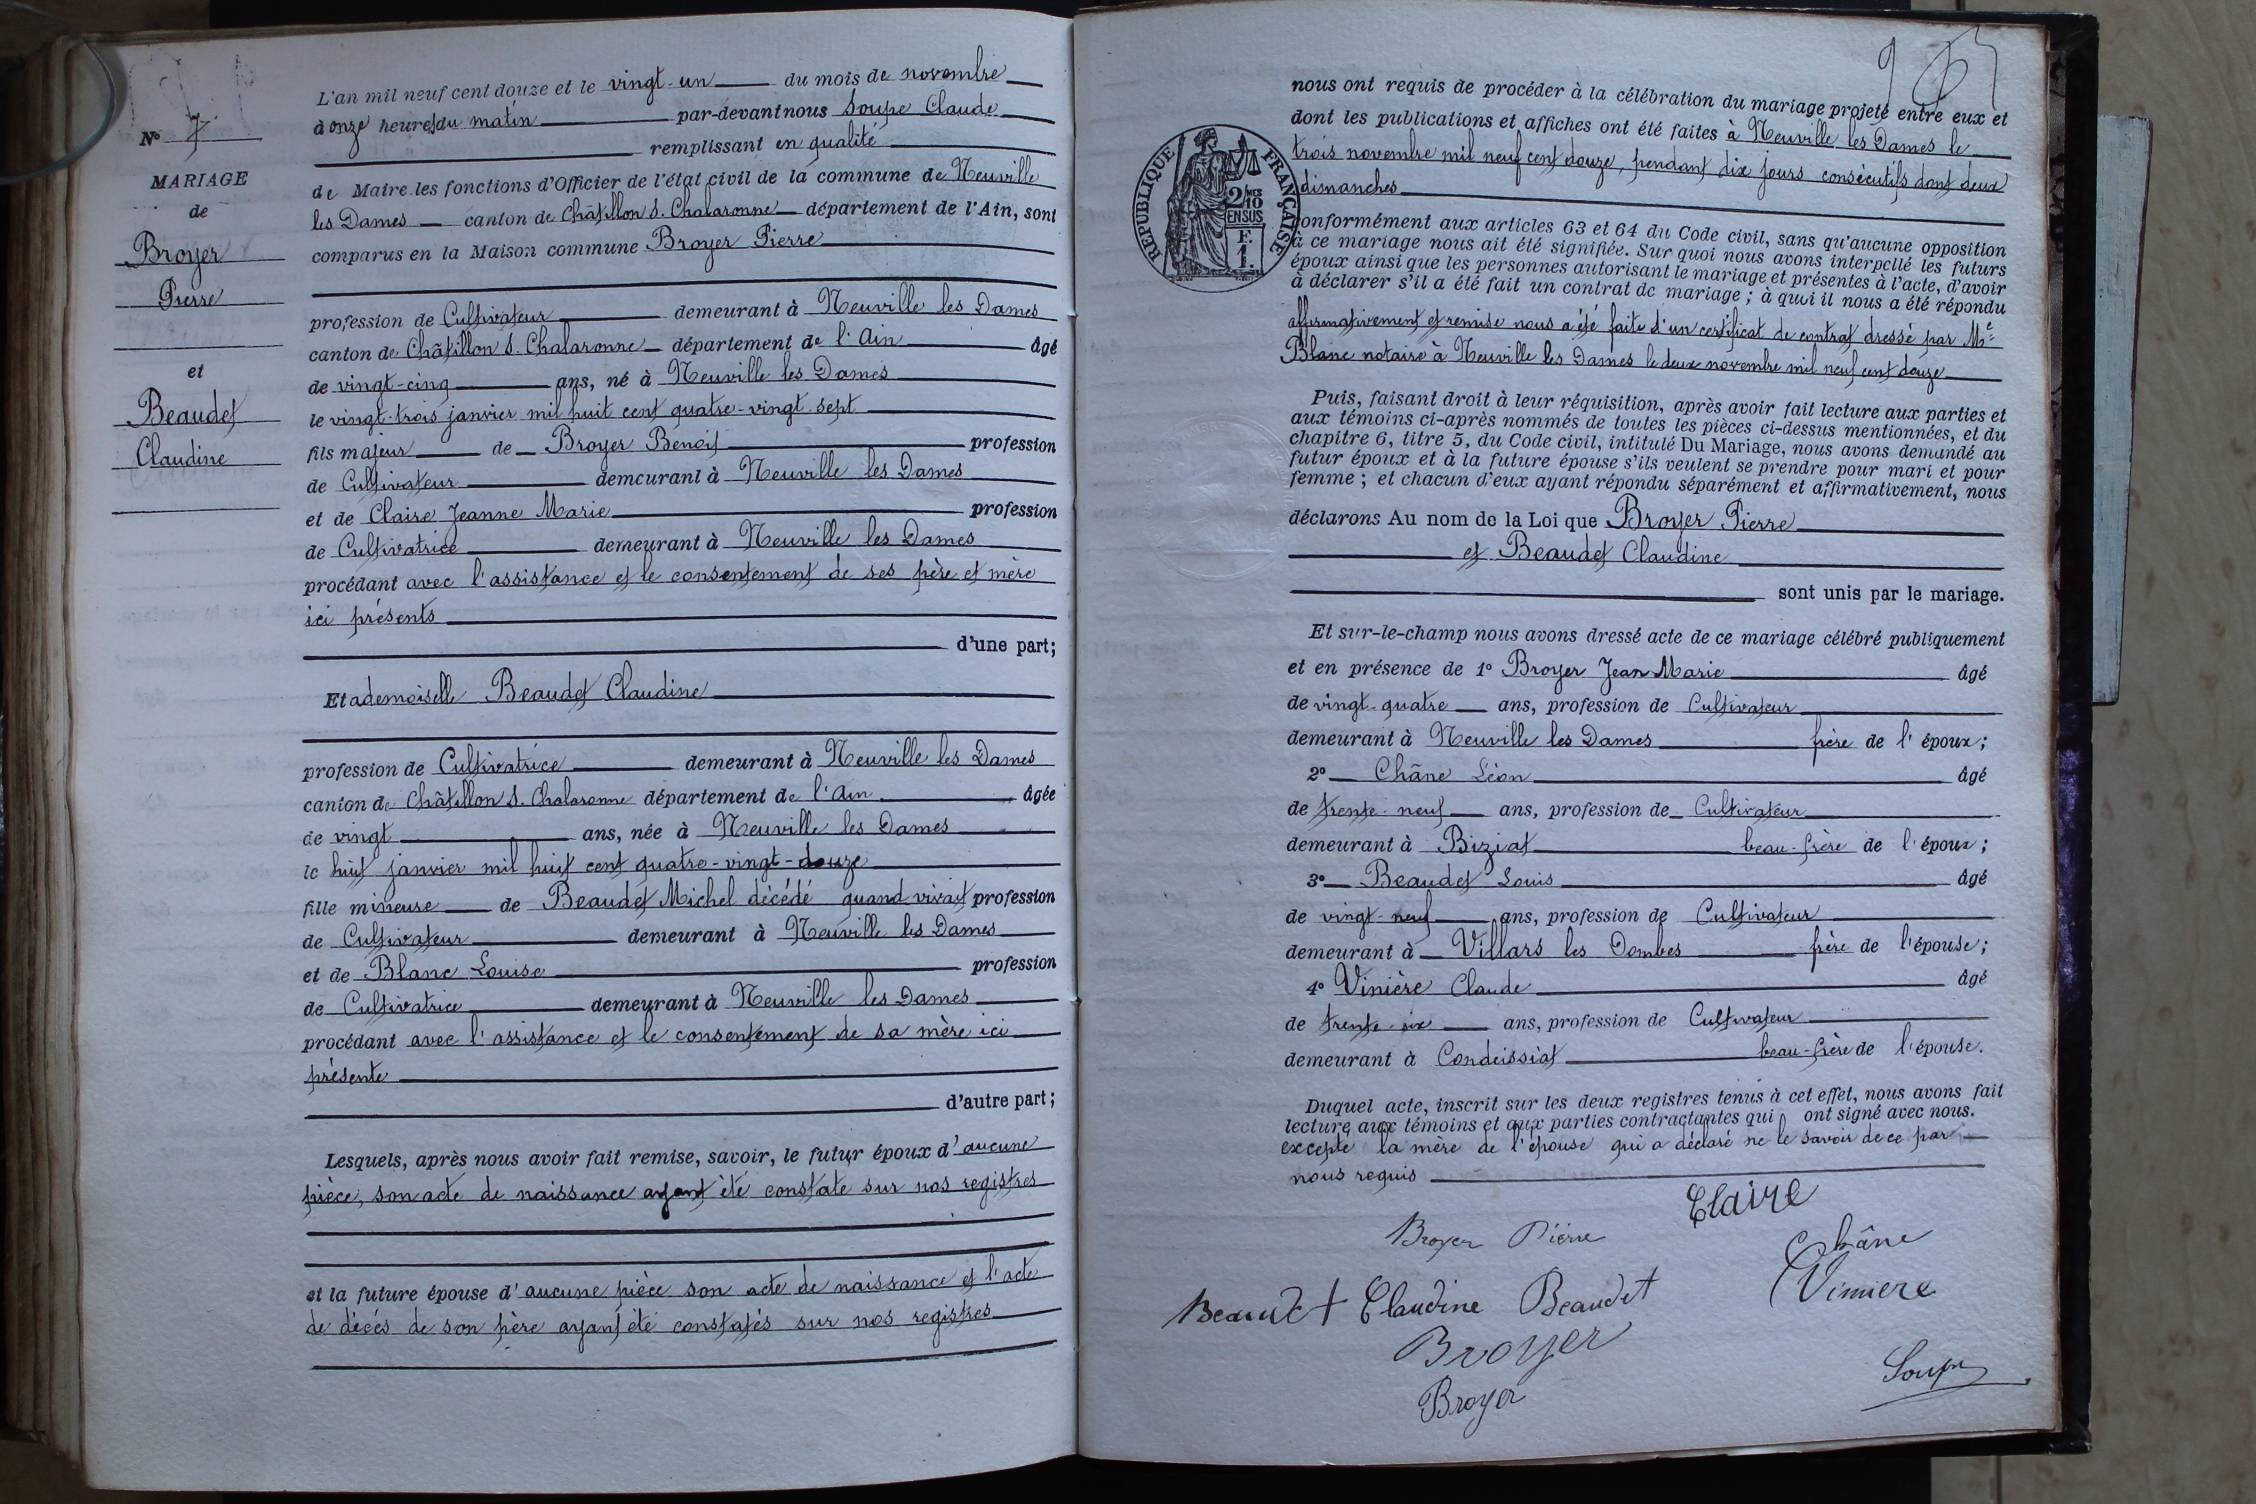 N° 7
MARIAGE
de
Broyer
Pierre
et
Beaudet
Claudine
L'an mil neuf cent douze et le vingt-un du mois de novembre
à onze heures du matin par-devant nous Soupe Claude
remplissant en qualité
de Maire les fonctions d'Officier de l'état civil de la commune de Neuville
les Dames canton de Châtillon s. Chalaronne département de l'Ain, sont
comparus en la Maison commune Broyer Pierre
profession de Cultivateur demeurant à Neuville les Dames
canton de Châtillon s. Chalaronne département de l'Ain âgé
de vingt-cinq ans, né à Neuville les Dames
le vingt-trois janvier mil huit cent quatre-vingt-sept
fils majeur de Broyer Benoit profession
de Cultivateur demeurant à Neuville les Dames
et de Claire Jeanne Marie profession
de Cultivatrice demeurant à Neuville les Dames
procédant avec l'assistance et le consentement de ses père et mère
ici présents
d'une part;
Et ademoiselle Beaudet Claudine
profession de Cultivatrice demeurant à Neuville les Dames
canton de Châtillon s. Chalaronne département de l'Ain âgée
de vingt ans, née à Neuville les Dames
le huit janvier mil huit cent quatre-vingt-douze
fille mineuse de Beaudet Michel décédé quand vivait profession
de Cultivateur demeurant à Neuville les Dames
et de Blanc Louise profession
de Cultivatrice demeurant à Neuville les Dames
procédant avec l'assistance et le consentement de sa mère ici
présente
d'autre part;
Lesquels, après nous avoir fait remise, savoir, le futur époux d'aucune
pièce, son acte de naissance ayant été constaté sur nos registres
et la future épouse d'aucune pièce son acte de naissance et l'acte
de décés de son père ayant été constatés sur nos registres
9
nous ont requis de procéder à la célébration du mariage projeté entre eux et
dont les publications et affiches ont été faites à Neuville les Dames le
trois novembre mil neuf cent douze, pendant dix jours consécutifs dont deux
dimanches
RÉPUBLIQUE FRANÇAISE
2/10 MES
EN SUS
F.
1.
conformément aux articles 63 et 64 du Code civil, sans qu'aucune opposition
à ce mariage nous ait été signifiée. Sur quoi nous avons interpellé les futurs
époux ainsi que les personnes autorisant le mariage et présentes à l'acte, d'avoir
à déclarer s'il a été fait un contrat de mariage; à quoi il nous a été répondu
affirmativement et remise nous a été faite d'un certificat de contrat dressé par Me
Blanc notaire à Neuville les Dames le deux novembre mil neuf cent douze
Puis, faisant droit à leur réquisition, après avoir fait lecture aux parties et
aux témoins ci-après nommés de toutes les pièces ci-dessus mentionnées, et du
chapitre 6, titre 5, du Code civil, intitulé Du Mariage, nous avons demandé au
futur époux et à la future épouse s'ils veulent se prendre pour mari et pour
femme; et chacun d'eux ayant répondu séparément et affirmativement, nous
déclarons Au nom de la Loi que Broyer Pierre
et Beaudet Claudine
sont unis par le mariage.
Et sur-le-champ nous avons dressé acte de ce mariage célébré publiquement
et en présence de 1° Broyer Jean Marie âgé
de vingt-quatre ans, profession de Cultivateur
demeurant à Neuville les Dames frère de l'époux;
2° Châne Léon âgé
de trente-neuf ans, profession de Cultivateur
demeurant à Biziat beau-frère de l'époux;
3° Beaudet Louis âgé
de vingt-neuf ans, profession de Cultivateur
demeurant à Villars les Dombes frère de l'épouse;
4° Vinière Claude âgé
de trente-six ans, profession de Cultivateur
demeurant à Condeissiat beau-frère de l'épouse.
Duquel acte, inscrit sur les deux registres tenus à cet effet, nous avons fait
lecture aux témoins et aux parties contractantes qui ont signé avec nous.
excepté la mère de l'épouse qui a déclaré ne le savoir de ce par
nous requis
Claire
Broyer Pierre
Châne
Viniere
Beaudet Claudine Beaudet
Broyer
Broyer
Soupe